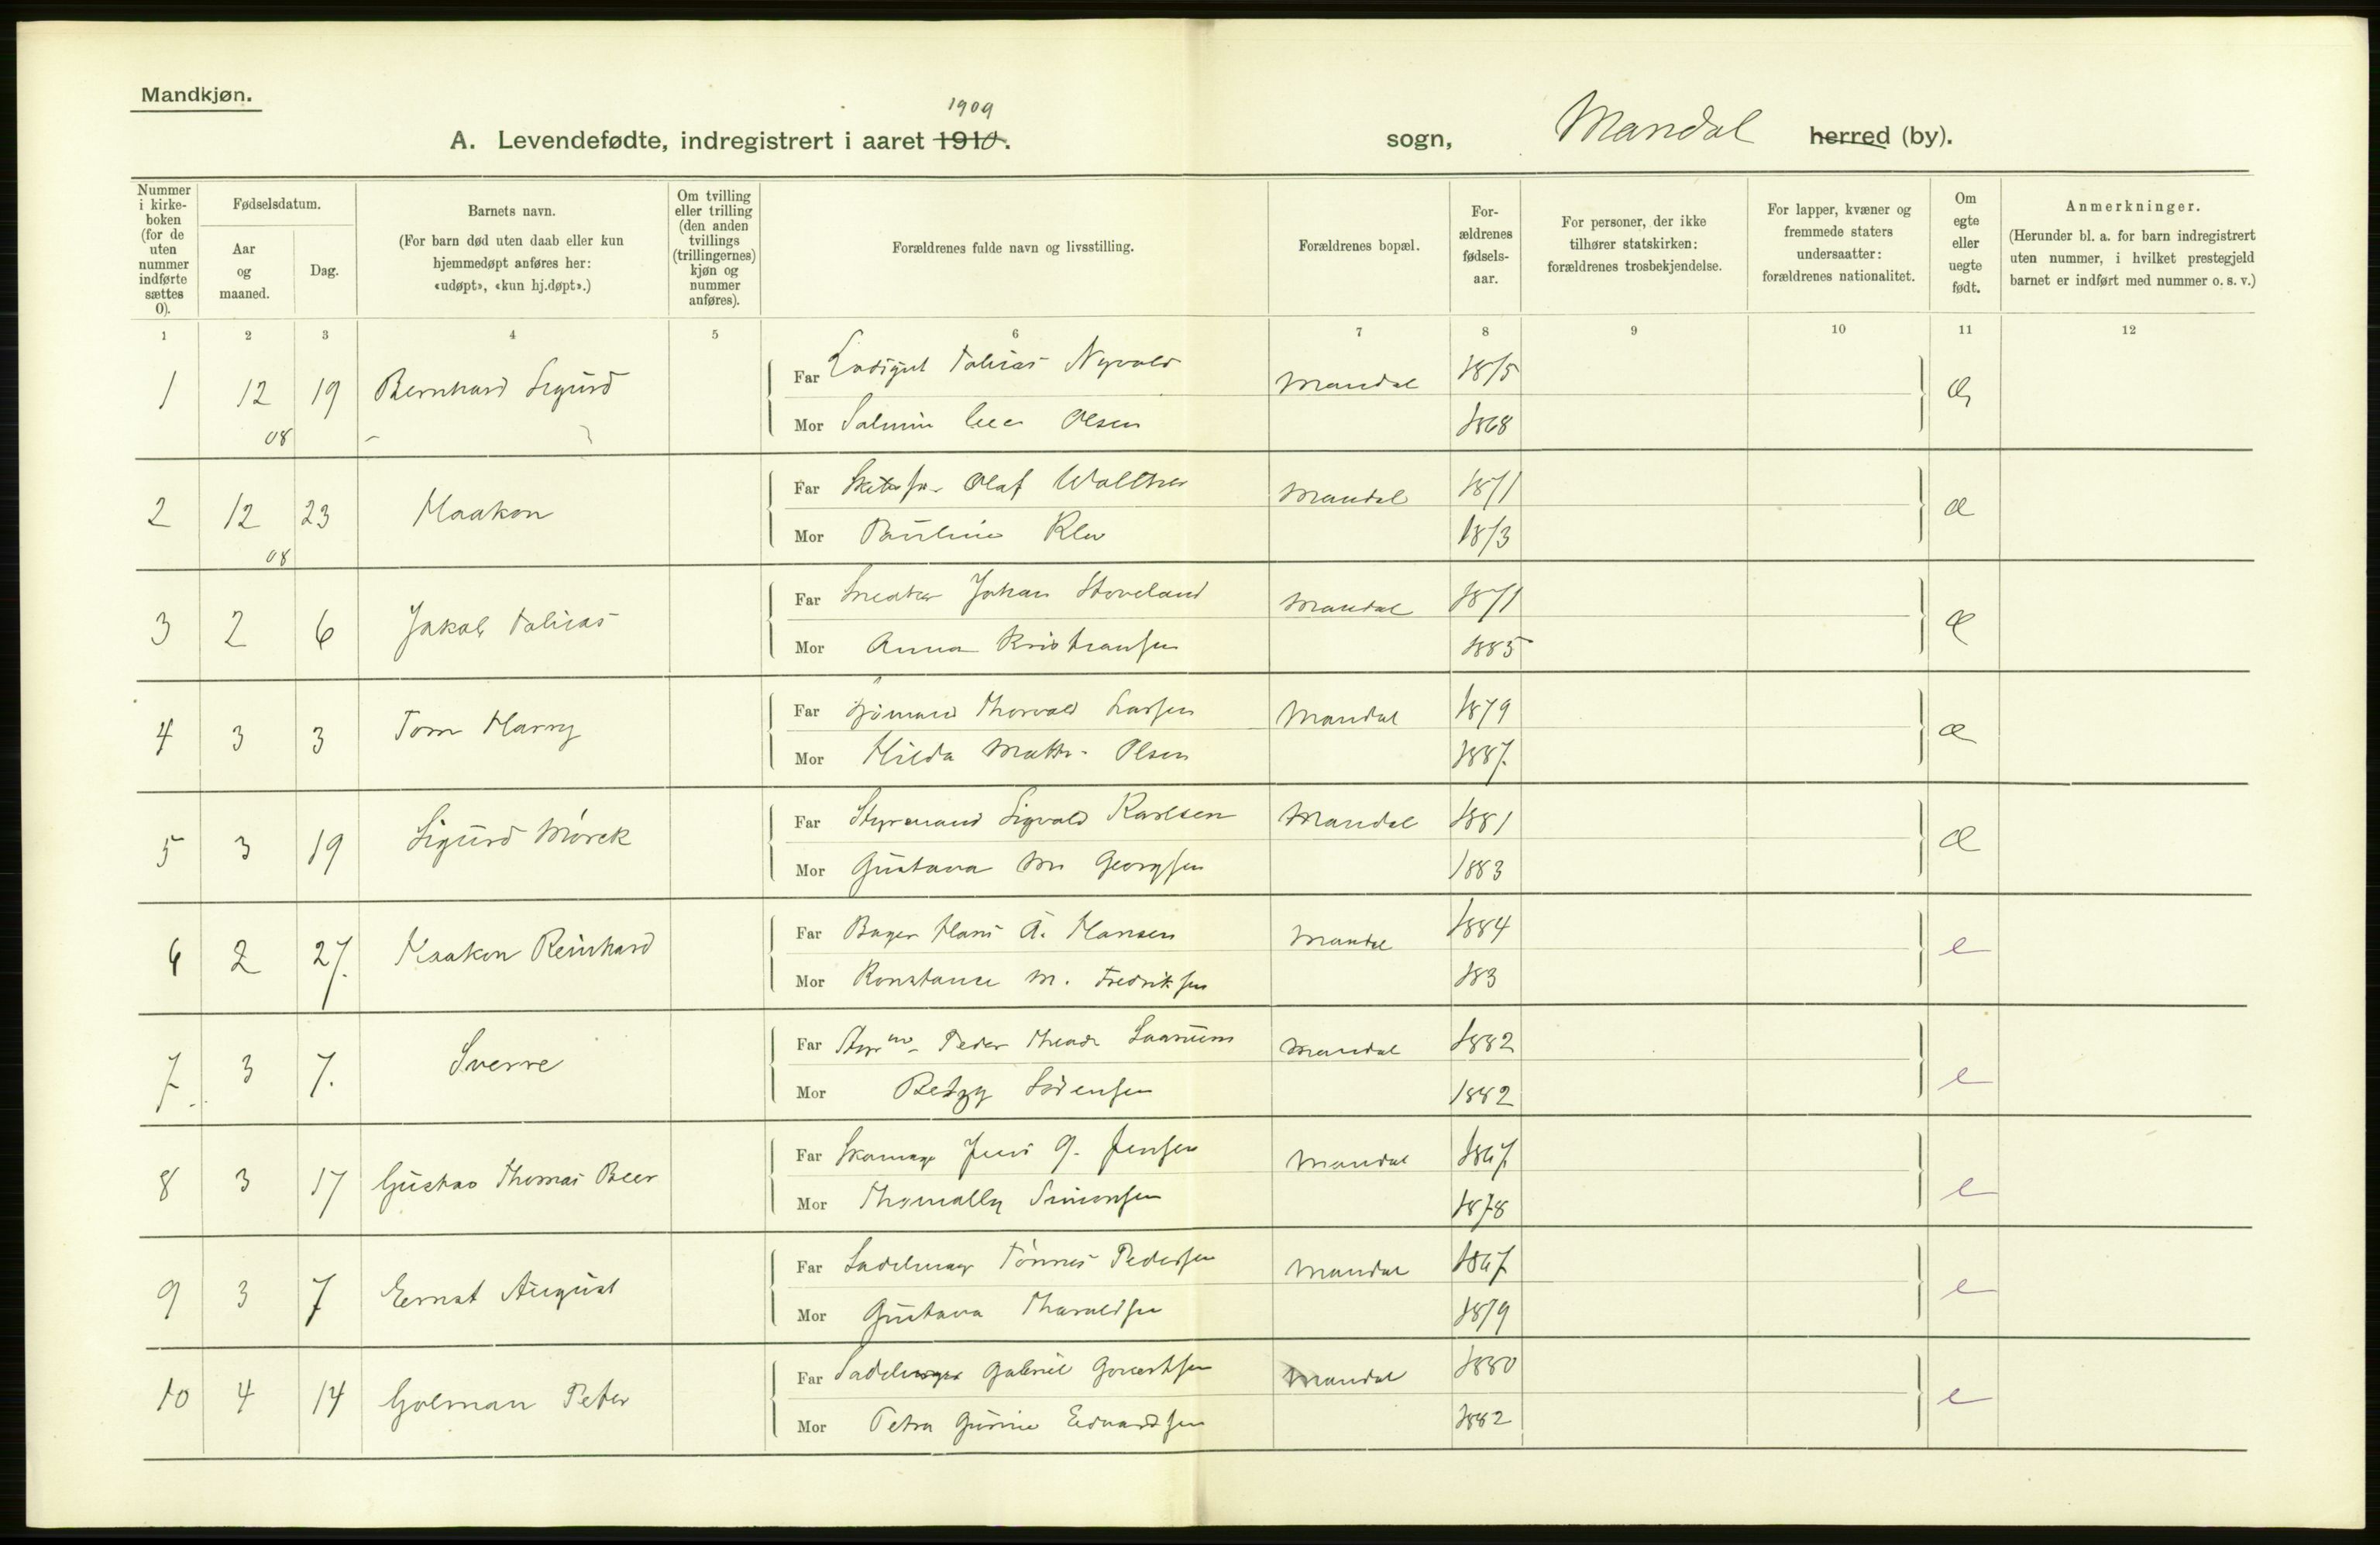 Mandkjøn.
1909
A. Levendefødte, indregistrert i aaret 1910. sogn, Mandal herred (by).
Nummer i kirke-boken (for de uten nummer indførte sættes 0).
Fødselsdatum.
Aar og maaned.
Dag.
Barnets navn.
(For barn død uten daab eller kun hjemmedøpt anføres her: «udøpt», «kun hj.døpt».)
Om tvilling eller trilling (den anden tvillings (trillingernes) kjøn og nummer anføres).
Forældrenes fulde navn og livsstilling.
Forældrenes bopæl.
For-ældrenes fødsels-aar.
For personer, der ikke tilhører statskirken: forældrenes trosbekjendelse.
For lapper, kvæner og fremmede staters undersaatter: forældrenes nationalitet.
Om egte eller uegte født.
Anmerkninger.
(Herunder bl. a. for barn indregistrert uten nummer, i hvilket prestegjeld barnet er indført med nummer o. s. v.)
1 2 3 4 5 6 7 8 9 10 11 12
1 12 08 19 Bernhard Sigurd Far Tobias Nyvold Mandal 1875 Æ
Mor Olsen 1868
2 12 08 23 Haakon Far Olaf Mandal 1871 æ
Mor Pauline 1873
3 2 6 Jakob Tobias Far Johan Stoveland Mandal 1871 Æ
Mor Anna Kristiansen 1885
4 3 3 Tom Harry Far Sjömand Thorvald Larsen Mandal 1879 æ
Mor Hilda Olsen 1887
5 3 19 Sigurd Mörck Far Styrmand Sigvald Karlsen Mandal 1881 Æ
Mor Gustava Georgsen 1883
6 2 27. Haakon Reinhard Far Bager Hans A. Hansen Mandal 1884 e
Mor Konstance M. Fredriksen 183
7 3 7. Sverre Far Styrm Peder Mandal 1882 e
Mor Betzy Sörensen 1882
8 3 17 Gustav Thomas Beer Far Skomag Jens G. Jensen Mandal 1867 e
Mor Simonsen 1878
9 3 7 Ernst August Far Sadelmag Tönnes Pedersen Mandal 1867 e
Mor Gustava Haraldsen 1879
10 4 14 Golman Peter Far Sadelmager Gabriel Mandal 1880 e
Mor Petra Gurine Edvardsen 1882